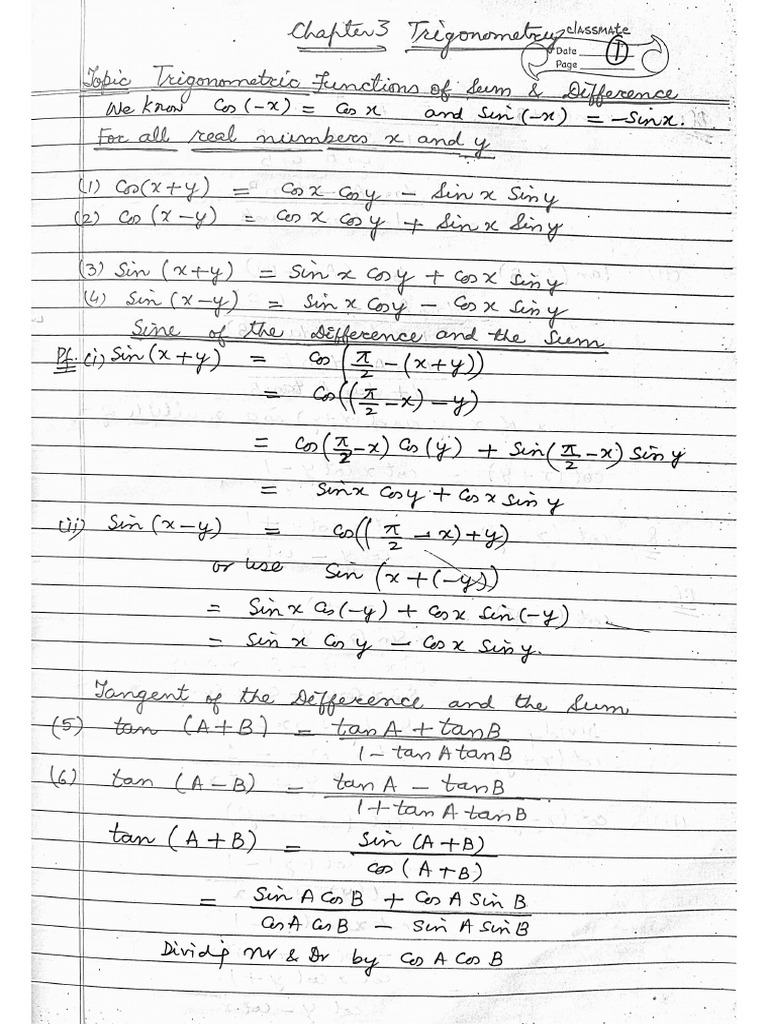 Chapter 3 Trigonometry
classmate
Date
Page 1
Topic Trigonometric Functions of Sum & Difference
We know Cos (-x) = Cos x and Sin (-x) = -Sinx.
For all real numbers x and y
(1) Cos(x+y) = Cosx Cosy - Sinx Siny
(2) Cos (x-y) = Cos x Cosy + Sinx Siny
(3) Sin (x+y) = Sinx Cosy + Cosx Siny
(4) Sin (x-y) = Sinx Cosy - Cosx Siny
Sine of the Difference and the Sum
Pf. (i) Sin(x+y) = Cos (π/2 - (x+y))
= Cos((π/2 - x) - y)
= Cos(π/2 - x) Cos(y) + Sin(π/2 - x) Siny
= Sinx Cosy + Cosx Siny
(ii) Sin (x-y) = Cos((π/2 - x) + y)
or use Sin (x+(-y))
= Sinx Cos(-y) + Cosx Sin(-y)
= Sin x Cosy - Cosx Siny.
Tangent of the Difference and the Sum
(5) tan (A+B) = tanA + tanB / 1 - tanA tanB
(6) tan (A-B) = tanA - tanB / 1 + tanA tanB
tan (A+B) = Sin (A+B) / Cos (A+B)
= Sin A Cos B + Cos A Sin B / Cos A Cos B - Sin A Sin B
Dividg Nr & Dr by Cos A Cos B